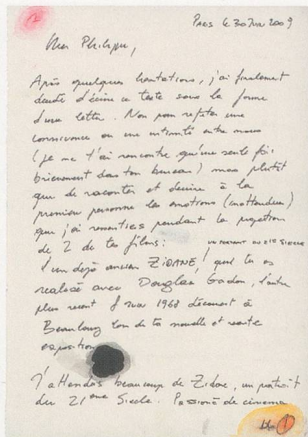 Paris le 30 Juin 2009
Cher Philippe,
Après quelques hesitations, j'ai finalement
décidé d'écrire ce texte sous la forme
d'une lettre. Non pour refléter une
connivence ou une intimité entre nous
(je ne t'ai rencontré qu'une seule fois
brièvement dans ton bureau) mais plutôt
que de raconter et décrire à la
première personne les émotions (inattendues)
que j'ai ressenties pendant la projection
de 2 de tes films:
un portrait du 21e siècle
l'un déjà ancien ZIDANE, que tu as
réalisé avec Douglas Gordon, l'autre
plus récent 8 1968 à
Beaubourg lors de ta nouvelle et
exposition
J'attendais beaucoup de Zidane, un portrait
du 21ème Siècle. Passionné de cinema
1